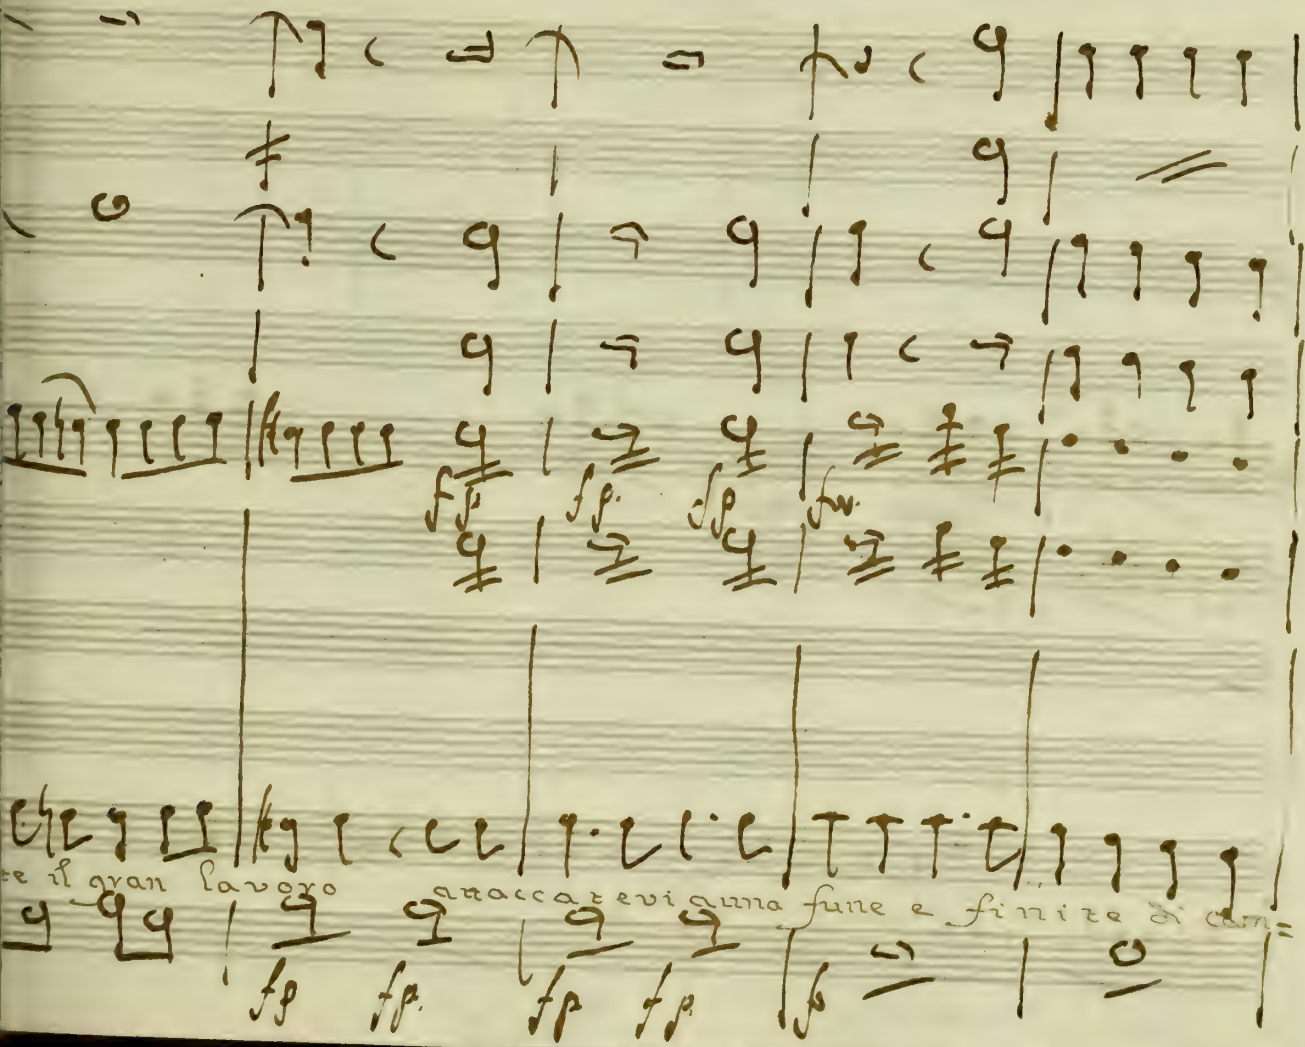 fp. fp. fp fw.
te il gran lavoro attaccatevi a una fune e finite di can=
fp fp. fp fp. fo